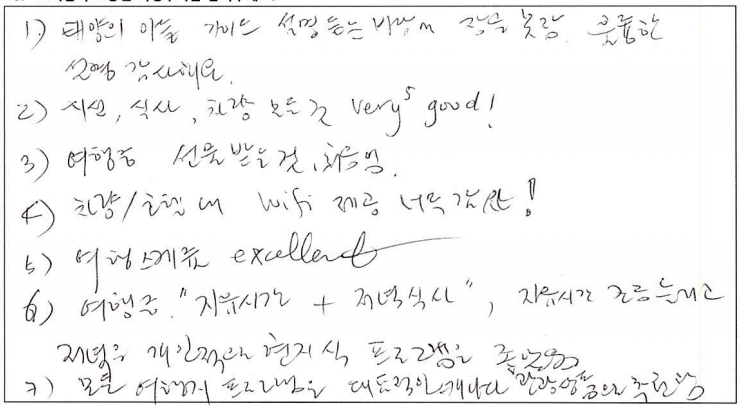 1) 태양의 아들 가이드 설명 듣는 바람에 잠을 못잠. 훌륭한
설명 감사해요.
2) 시설, 식사, 차량 모든 것 very⁵ good!
3) 여행중 선물 받은 것, 처음임.
4) 차량/호텔 내 wifi 제공 너무 감산!
5) 여행스케쥴 excellent
6) 여행중 "자유시간 + 저녁식사", 자유시간 조금 늘리고
저녁은 개인적으로 현지식 프로그램을 좋았음
7) 모든 여행지 프로그램은 대표적인